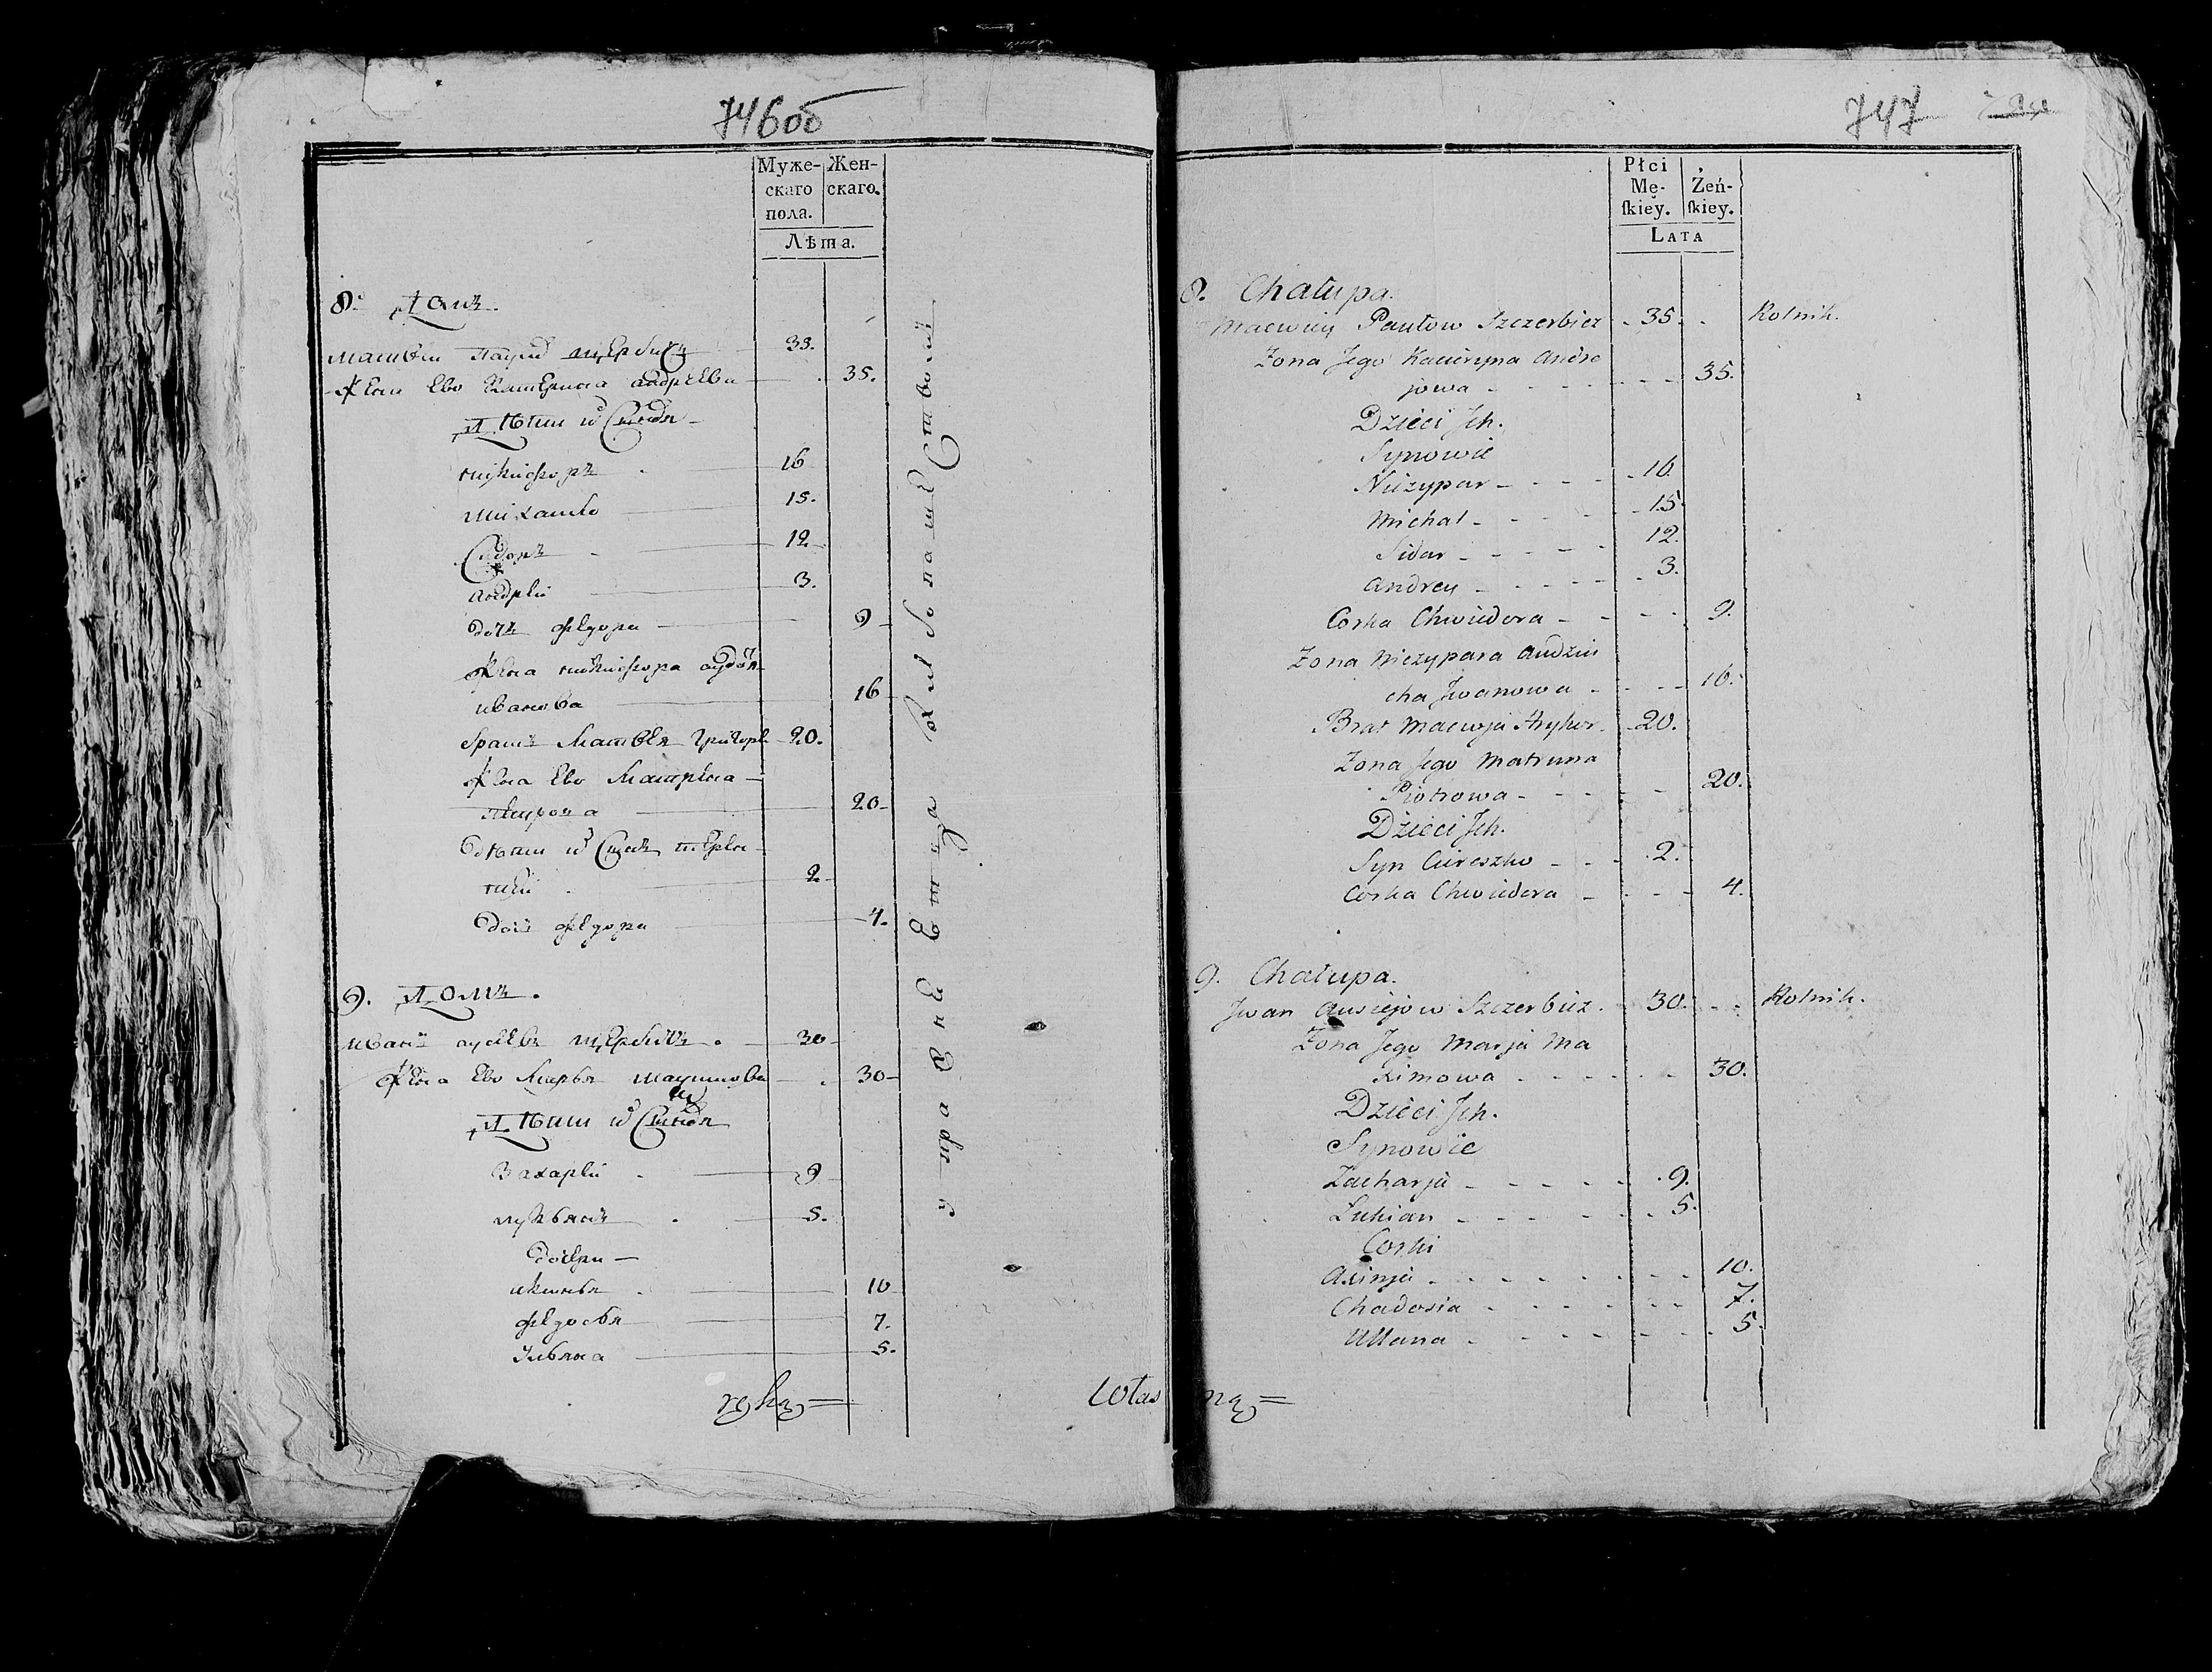 746об
Муже-
скаго
пола.
Жен-
скаго.
Лѣта.
8. Домъ.
Матвѣй 35.
Жена Ево Катерина Андреева 35.
Дѣти их Сыновя
Никифоръ 16
Михайло 15.
Сидоръ 12
Андрей 3.
дочь Федора 9
Жена Никифора
иванова 16
братъ Матвея Григорей 20.
Жена Ево Матрена
Петрова 20
дѣти их Сынъ
2
дочь Федора 4.
9. Домъ.
Иванъ Щербичъ 30
Жена Ево Марья 30
Дѣти их Сыновя
Захарей 9
лукьянъ 5.
дочери
аксинья 10
федосья 7.
ульяна 5.
747
Płci
Mę-
ſkiey.
Żeń-
ſkiey.
LATA
8. Chałupa.
Maciwiey Pawłow Szczerbicz 35. Rolnik.
Zona Jego Kacieryna Andre
jowa 35.
Dzieci Jch.
Synowie
Niczypar 16.
Michał 15
Sidar 12.
Andrey 3.
Corka Chwiedora 9.
Zona Niczypara Audziu
cha Jwanowa 16.
Brat Maciwja Hryhor 20.
Zona Jego Matruna
Piotrowa 20.
Dzieci Jch.
Syn Ciereszko 2.
Corka Chwiedora 4.
9. Chałupa.
Jwan Ausiejow Szczerbicz. 30. Rolnik.
Zona Jego Marja Ma
ximowa 30.
Dzieci Jch.
Synowie
Zacharja 9.
Łukian 5.
Corki
Axinja 10.
Chadosia 7.
Ullana 5.